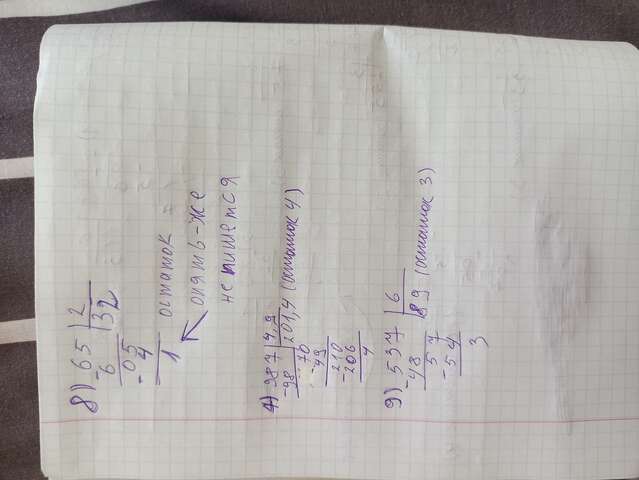 8) -65 | 2
6 | 32
-05
4
1 остаток
опять-же
не пишется
4) 987 | 4,9
-98 | 201,4 (остаток 4)
70
-49
210
-206
4
9) 537 | 6
-48 | 89 (остаток 3)
57
-54
3